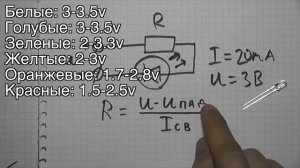 Белые: 3-3.5v
Голубые: 3-3.5v
Зеленые: 2-3.3v
Желтые: 2-3v
Оранжевые: 1.7-2.8v
Красные: 1.5-2.5v
R
I = 20mA
U = 3В
R = U - Uпад
Iсв